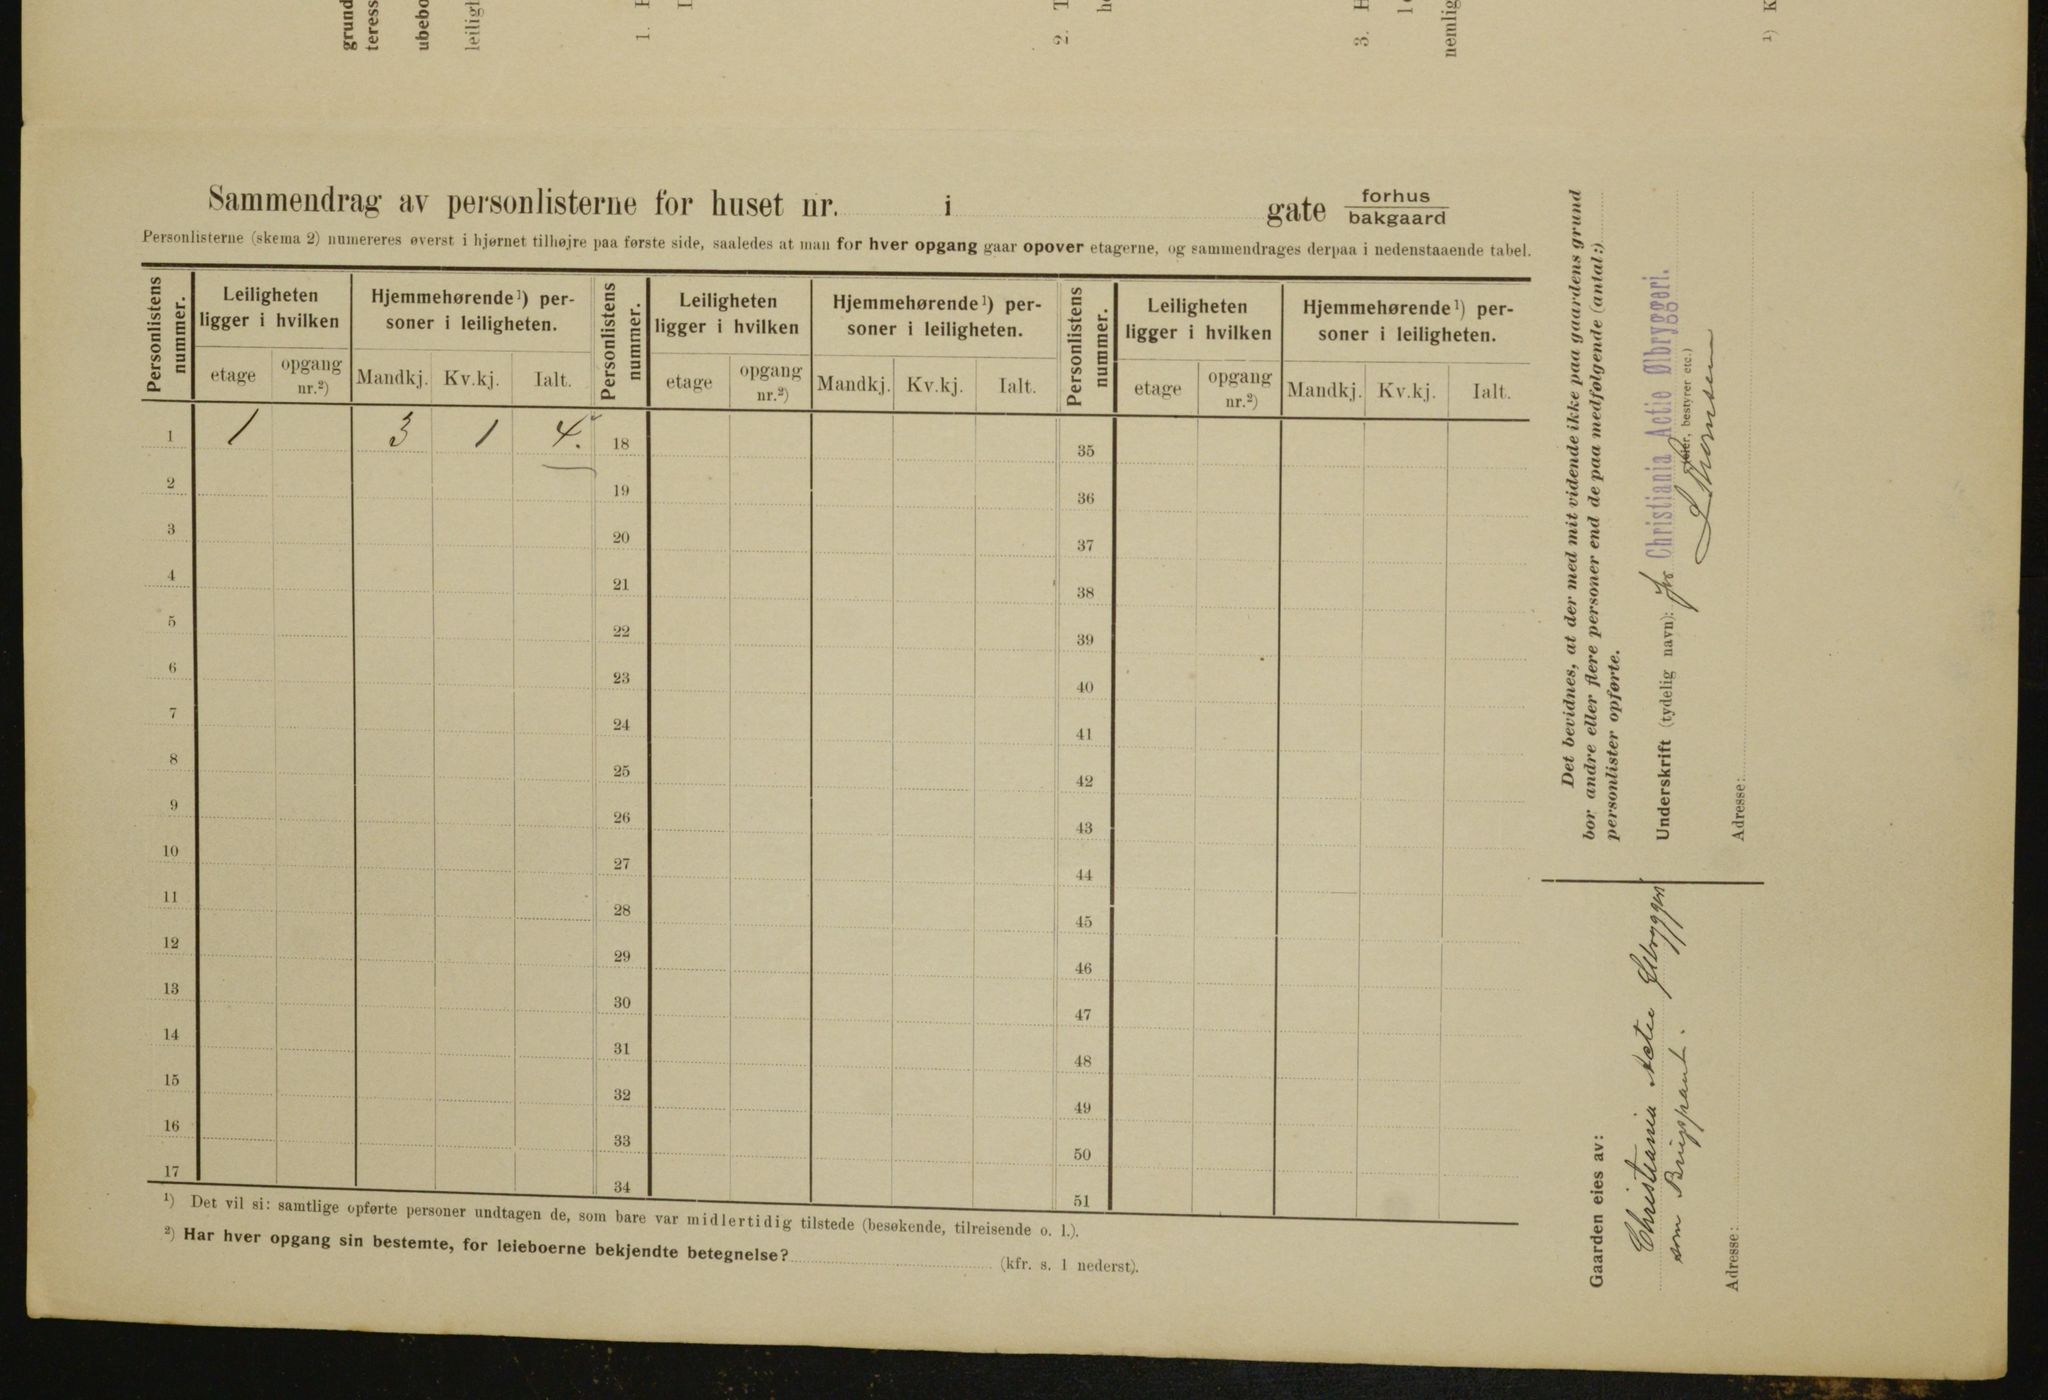 grund
teress
ubebo
leiligh
1.
2. T
3. H
nemlig
¹) K
Sammendrag av personlisterne for huset nr. i gate forhus
bakgaard
Personlisterne (skema 2) numereres øverst i hjørnet tilhøjre paa første side, saaledes at man for hver opgang gaar opover etagerne, og sammendrages derpaa i nedenstaaende tabel.
Personlistens nummer.
Leiligheten ligger i hvilken
Hjemmehørende¹) per-
soner i leiligheten.
etage opgang nr.²) Mandkj. Kv.kj. Ialt.
Personlistens nummer.
Leiligheten ligger i hvilken
Hjemmehørende¹) per-
soner i leiligheten.
etage opgang nr.²) Mandkj. Kv.kj. Ialt.
Personlistens nummer.
Leiligheten ligger i hvilken
Hjemmehørende¹) per-
soner i leiligheten.
etage opgang nr.²) Mandkj. Kv.kj. Ialt.
1 1 3 1 4. 18 35
2 19 36
3 20 37
4 21 38
5 22 39
6 23 40
7 24 41
8 25 42
9 26 43
10 27 44
11 28 45
12 29 46
13 30 47
14 31 48
15 32 49
16 33 50
17 34 51
¹) Det vil si: samtlige opførte personer undtagen de, som bare var midlertidig tilstede (besøkende, tilreisende o. l.).
²) Har hver opgang sin bestemte, for leieboerne bekjendte betegnelse? (kfr. s. 1 nederst).
Det bevidnes, at der med mit vidende ikke paa gaardens grund
bor andre eller flere personer end de paa medfølgende (antal:)
personlister opførte.
Underskrift (tydelig navn): for Christiania Actie Ølbryggeri.
(eier, bestyrer etc.)
Adresse:
Gaarden eies av:
Christiania Actie Ølbryggeri
som Brugspant.
Adresse: